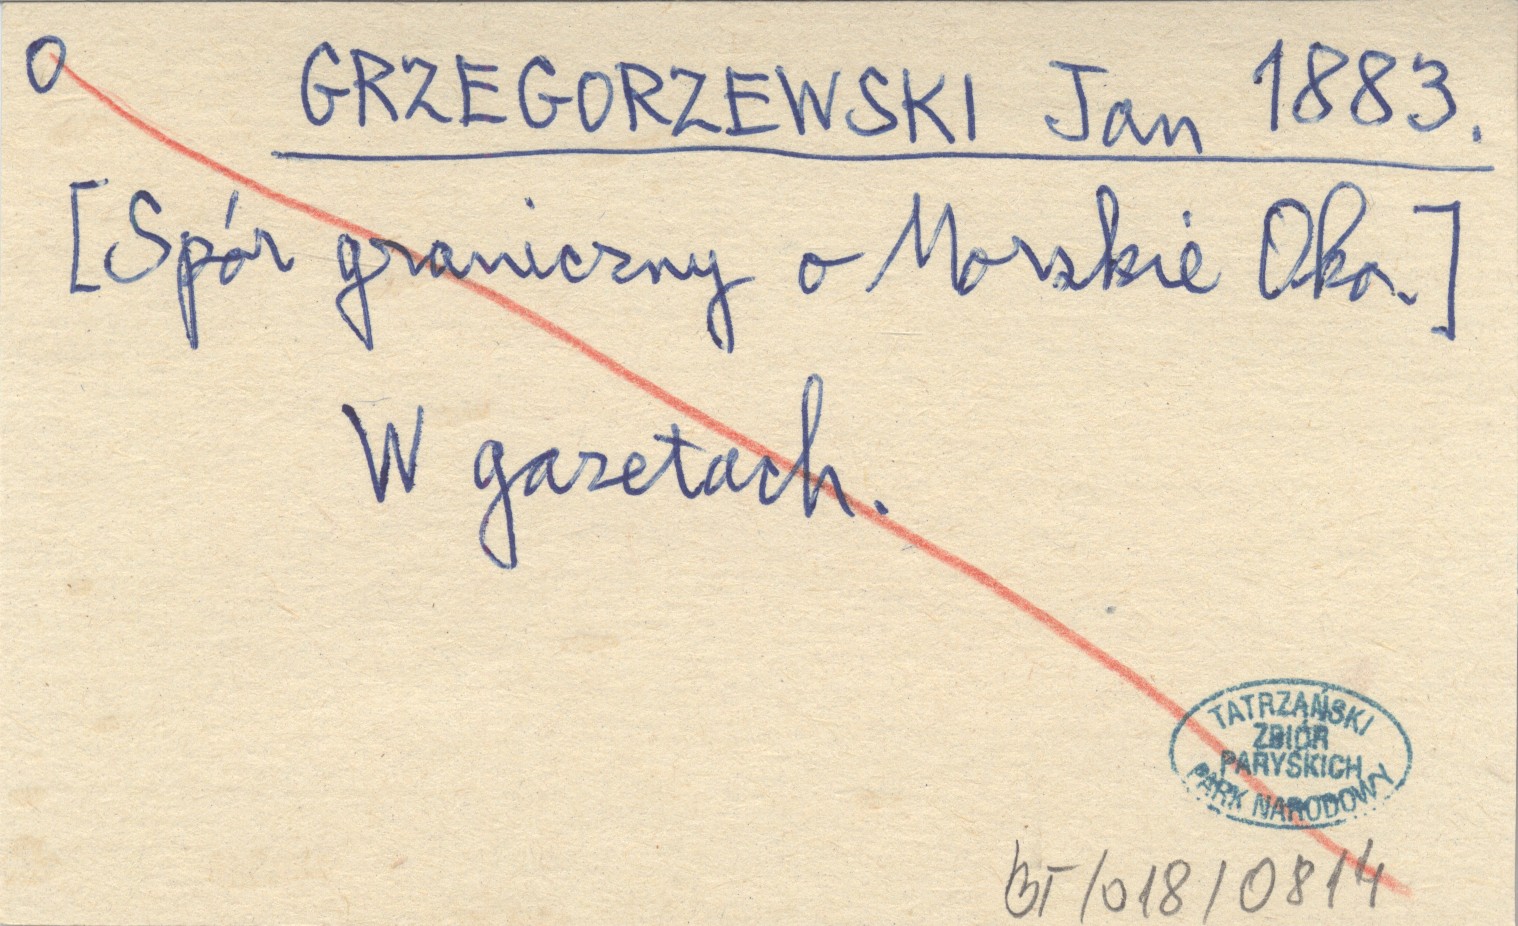 O GRZEGORZEWSKI Jan 1883.
[Spór graniczny o Morskie Oko.]
W gazetach.
TATRZAŃSKI
ZBIÓR
PARYSKICH
PARK NARODOWY
BT/018/0814